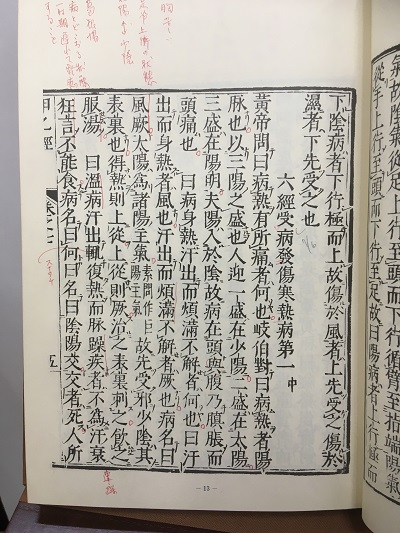 從手上行至頭而下行至足故曰陽病者上行極而
下陰病者下行極而上故傷於風者上先受之傷於
濕者下先受之也
六經受病發傷寒熱病第一中
黃帝問曰病熱有所痛者何也岐伯對曰病熱者陽
脉也以三陽之盛也人迎一盛在少陽二盛在太陽
三盛在陽明夫陽入於陰故病在頭與腹乃䐜脹而
頭痛也 曰病身熱汗出而煩滿不解者何也曰汗
出而身熱者風也汗出而煩滿不解者厥也病名曰
風厥太陽為諸陽主氣素問作巨陽主氣故先受邪少陰其
表裏也得熱則上從上從則厥治之表裏刺之飲之
服湯 曰溫病汗出輒復熱而脉躁疾者不為汗衰
狂言不能食病名曰何曰名曰陰陽交交者死人所
甲乙經 卷之七 五
— 13 —